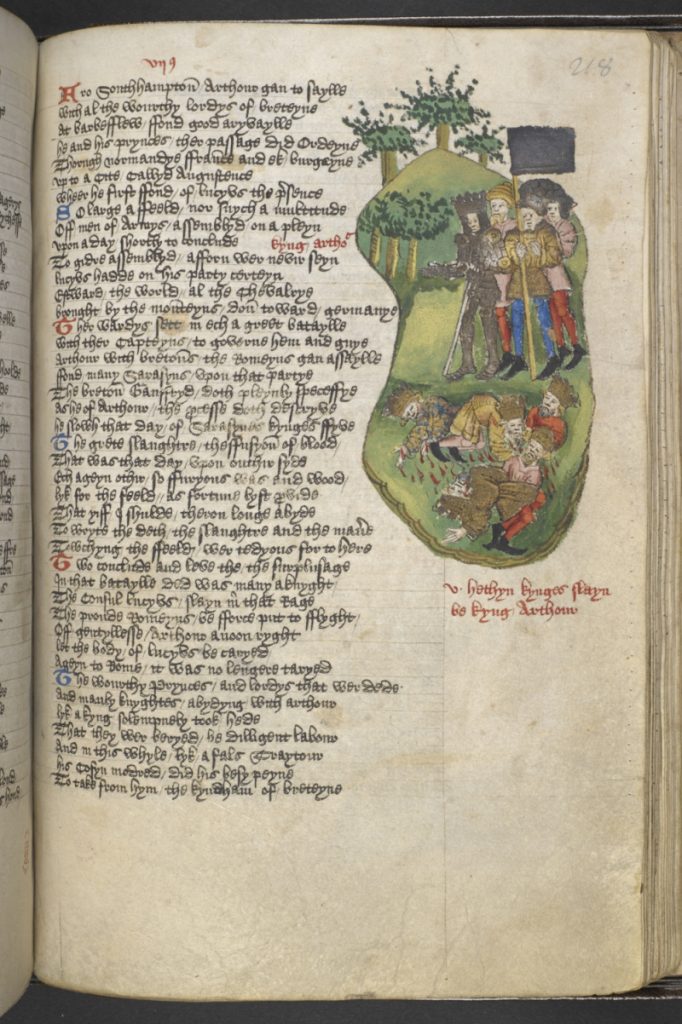 218
Fro Southhamptoun Arthour gan to saylle
with al the wourthy lordys of breteyne
at barbefflew / ffond good aryvaylle
he and his prynces / ther passage did Ordeyne
Thorugh normandye ffraunce and ek burgeyne
vp to a Cite callyd Augustence
wheer he first ffond / of lucyus the presence
So large a ffeeld / nor suych a multitude
Off men of Armys / assemblyd on a pleyn
vpon a day shortly to conclude
kyng arthor
To gidre assemblyd / afforn wer nevir seyn
lucyus hadde on his party certeyn
Estward the world / al the Chevalrye
brought / by the mounteyns / doun toward / germanye
Ther wardys sett in ech a greet bataylle
with ther Capteyns / to governe hem and guye
Arthour with bretouns / the Romeyns gan assaylle
fond many Sarasyns / vpon that partye
The bretoun Gaufryd / doth pleynly speceffye
as he of Arthour / the processe doth descryve
he slowh that day / of Sarasynes kynges ffyve
The grete slaughtre / theffusyoun of blood
That was that day / vpon outhir syde
Ech ageyn othir / so ffuryous was and wood /
lyk for the feeld / as fortune lyst provide
That yiff I shulde / theron longe abyde
To wryte the deth / the slaughtre and the maner
Towchyng the ffeeld / wer tedyous for to here
To conclude and leve the / the surplusage
In that bataylle ded was many a knyght /
The Consul lucyus / slayn in that Rage
The proude Romeyns / be fforce put to fflyght /
Off gentyllesse / Arthour anoon ryght
let the body / of lucyus be caryed
Ageyn to Rome / it was no lengere taryed
The wourthy Prynces / and lordys that wer dede
And manly knyghtes / abydyng with arthour
lyk a kyng solempnely took hede
That they wer beryed / he dilligent labour
And in this whyle / lyk a fals Traytour
his Cosyn modred / did his besy peyne
To take from hym / the kyndham of breteyne
v. hethyn kynges slayn
be kyng Arthour